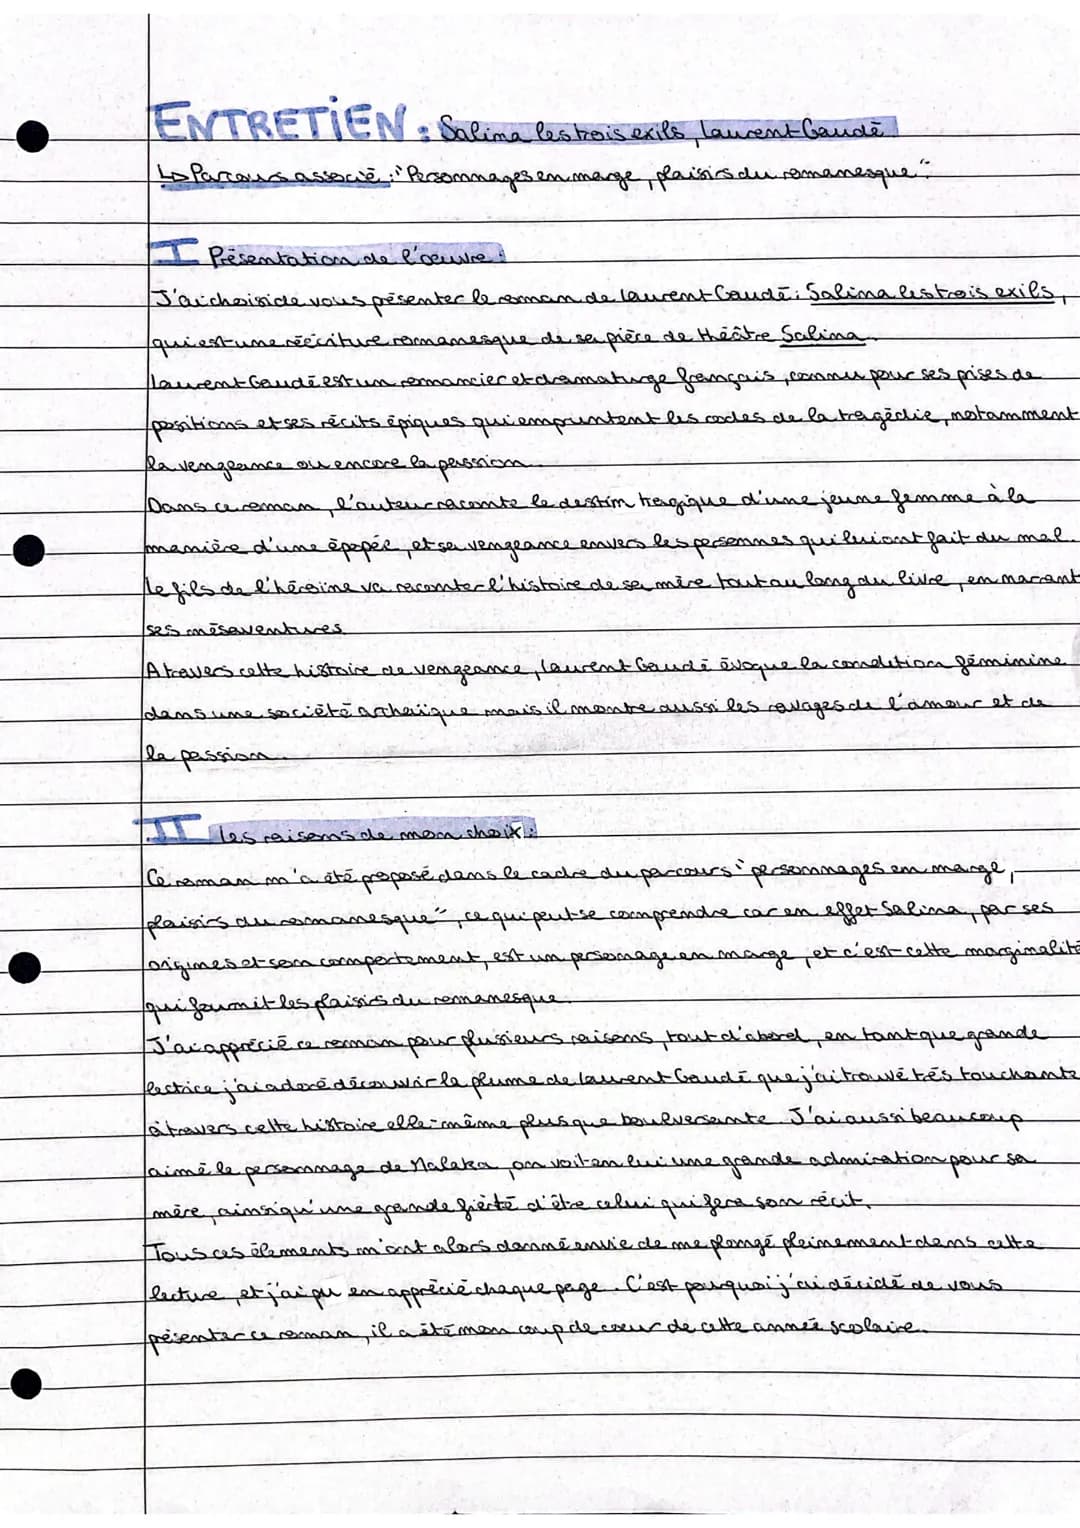 ENTRETIEN : Salina les trois exils, Laurent Gaudé
↳ Parcours associé : "Personnages en marge, plaisirs du romanesque".
I Présentation de l'oeuvre :
J'ai choisi de vous présenter le roman de Laurent Gaudé : Salina les trois exils,
qui est une réécriture romanesque de sa pièce de théâtre Salina.
Laurent Gaudé est un romancier et dramaturge français, connu pour ses prises de
positions et ses récits épiques qui empruntent les codes de la tragédie, notamment
la vengeance ou encore la passion.
Dans ce roman, l'auteur raconte le destin tragique d'une jeune femme à la
manière d'une épopée, et sa vengeance envers les personnes qui lui ont fait du mal.
Le fils de l'héroïne va raconter l'histoire de sa mère tout au long du livre, en narrant
ses mésaventures.
A travers cette histoire de vengeance, Laurent Gaudé évoque la condition féminine
dans une société archaïque mais il montre aussi les ravages de l'amour et de
la passion.
II Les raisons de mon choix :
Ce roman m'a été proposé dans le cadre du parcours "personnages en marge,
plaisirs du romanesque", ce qui peut se comprendre car en effet Salina, par ses
origines et son comportement, est un personage en marge, et c'est cette marginalité
qui fournit les plaisirs du romanesque.
J'ai apprécié ce roman pour plusieurs raisons, tout d'abord, en tant que grande
lectrice j'ai adoré découvrir la plume de Laurent Gaudé que j'ai trouvé très touchante
à travers cette histoire elle-même plus que boulversante. J'ai aussi beaucoup
aimé le personnage de Malaka, on voit en lui une grande admiration pour sa
mère, ainsi qu'une grande fierté d'être celui qui fera son récit.
Tous ces élements m'ont alors donné envie de me plongé pleinement dans cette
lecture, et j'ai pu en apprécié chaque page. C'est pourquoi j'ai décidé de vous
présenter ce roman, il a été mon coup de coeur de cette année scolaire.